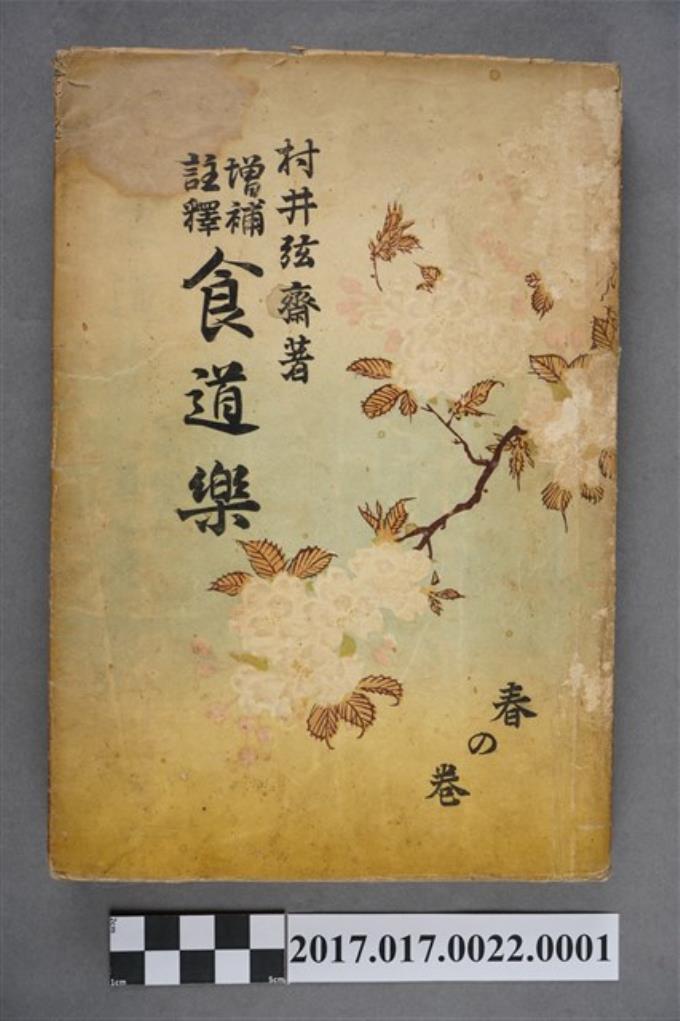 村井弦齋著
增補
註釋
食道樂
春の卷
2cm
1cm
5cm
2017.017.0022.0001